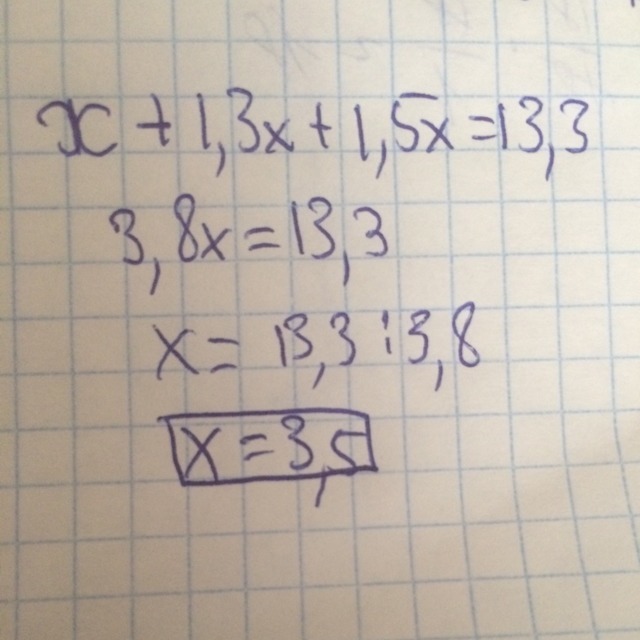 x + 1,3x + 1,5x = 13,3
3,8x = 13,3
x = 13,3 : 3,8
x = 3,5